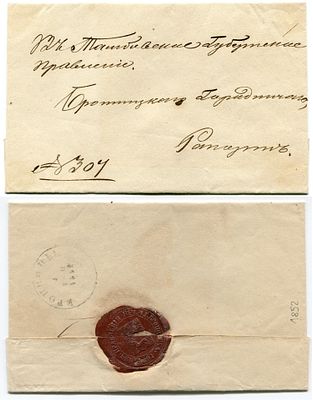 Въ Тамбовское Губернское
Правленіе.
Городничаго,
Рапортъ.
№ 307
1852